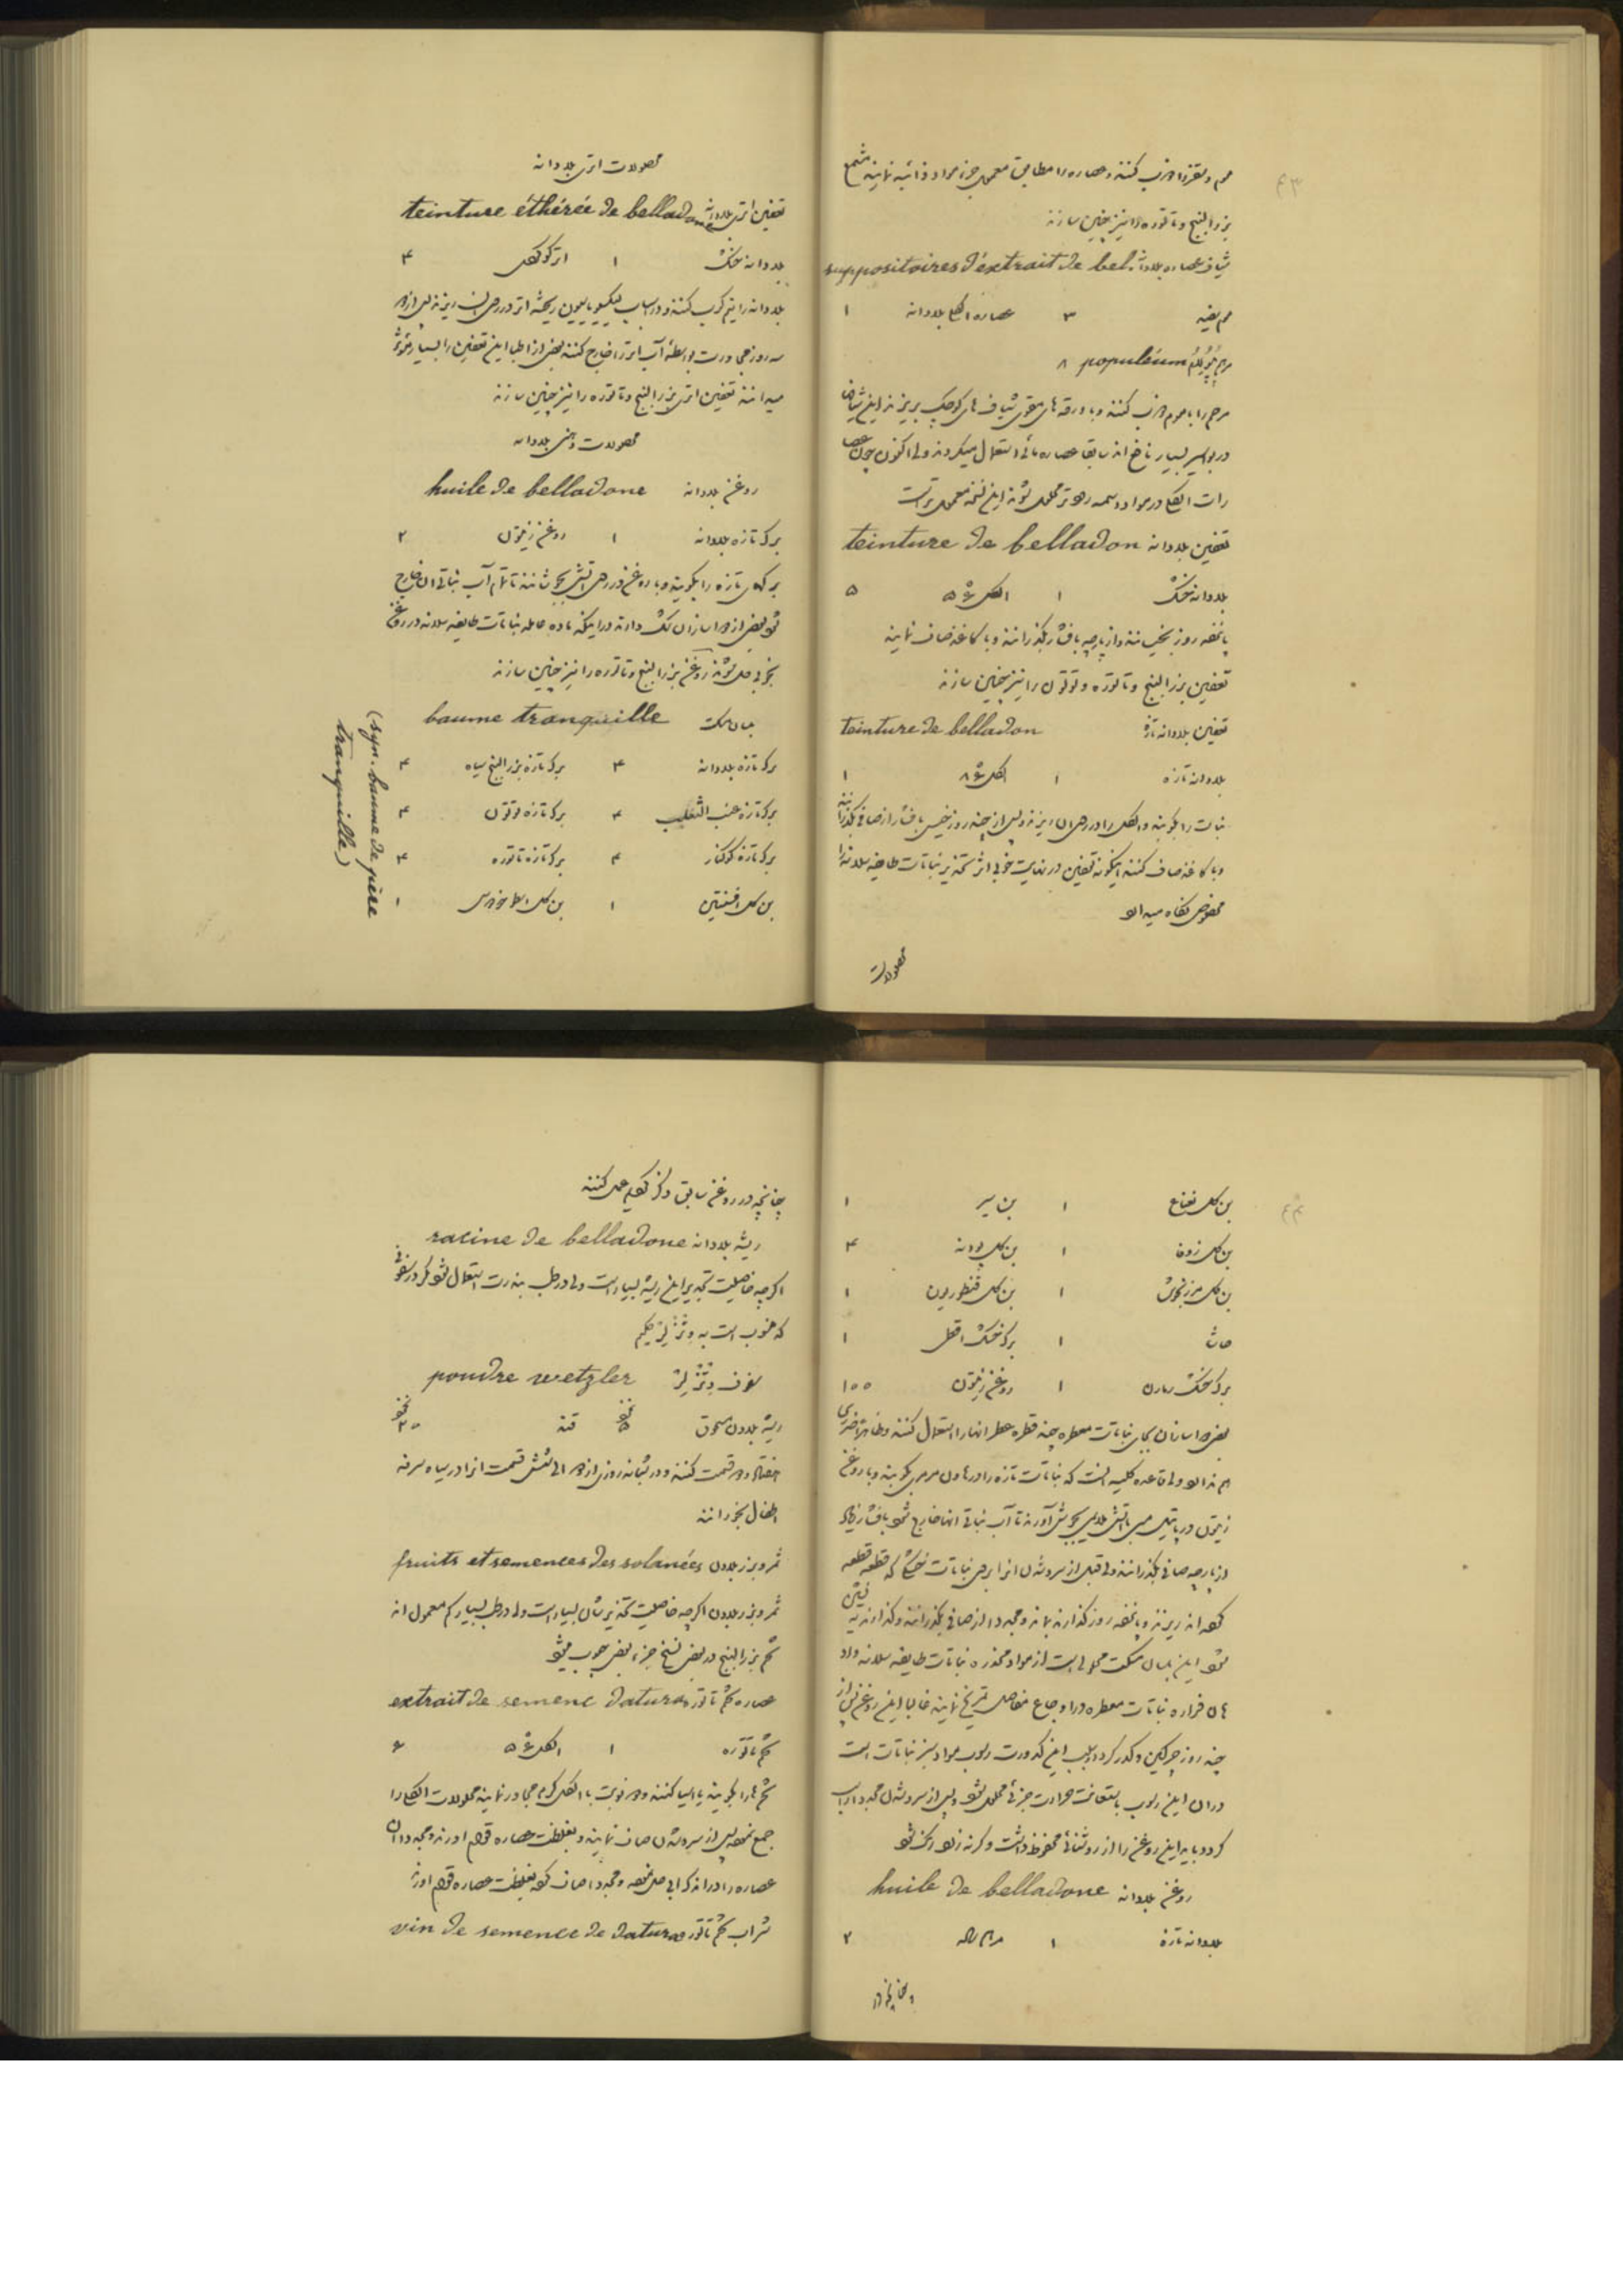 ۴۳
موم و سقز را ذوب کنند و عصاره را مطابق معمول جزء مواد ذائبه نمایند مشمع
بزرالبنج و تاتوره را نیز چنین سازند
شیاف عصاره بلادانه suppositoires d'extrait de bel.
موم سفید ۳ عصاره الکلی بلادانه ۱
مرهم پوپولئوم populéum ۸
مرهم را با موم ذوب کنند و با ورقه های مقوی شیاف های کوچک بریزند این شیاف
در بواسیر بسیار نافع اند سابقا عصاره مائی استعمال میکردند ولی اکنون چون عصا
رات الکلی در مواد دسمه زودتر محلول شوند این نسخه معمول تر است
تعفین بلادانه teinture de belladon
بلادانه خشک ۱ الکل ۵
پانزده روز بخیسانند و از پارچه بافشار بگذرانند و با کاغذ صاف نمایند
تعفین بزرالبنج و تاتوره و توتون را نیز چنین سازند
تعفین بلادانه تازه teinture de belladon
بلادانه تازه ۱ الکل ۱
نباتات را بکوبند و الکل را در روی آن ریزند و پس از چند روز خیس بافشار از صافی بگذرانند
و با کاغذ صاف کنند اینگونه تعفین در نهایت خوبی اثر تخدیر نباتات طایفه سلانه را
مخصوص نگاه میدارد
محصولات
محصولات اتری بلادانه
تعفین اتری بلادانه teinture éthérée de belladone
بلادانه خشک ۱ اتر الکلی ۴
بلادانه را نیم کوب کنند و در اسباب لیکسیویاسیون ریخته اتر در روی آن ریزند پس از دو
سه روز مجاورت بواسطه آب اتر را خارج کنند بعض از اطبا این تعفین را بسیار مؤثر
میدانند تعفین اتری بزرالبنج و تاتوره را نیز چنین سازند
محصولات دهنی بلادانه
روغن بلادانه huile de belladone
برگ تازه بلادانه ۱ روغن زیتون ۲
برگهای تازه را بکوبند و با روغن در روی آتش بجوشانند تا تمام آب نباتی آن خارج
شود بعض از دواسازان شک دارند در اینکه ماده عامله نباتات طایفه سلانه در روغن
بخوبی حل شوند روغن بزرالبنج و تاتوره را نیز چنین سازند
بلسان مسکت baume tranquille
(syn. baume de père tranquille)
برگ تازه بلادانه ۴ برگ تازه بزرالبنج سیاه ۴
برگ تازه عنب الثعلب ۴ برگ تازه توتون ۴
برگ تازه کوکنار ۴ برگ تازه تاتوره ۴
بن گل افسنتین ۱ بن گل اسطوخودوس ۱
۴۴
بن گل نعناع ۱ بن سیر ۱
بن گل زوفا ۱ بن گل پودنه ۴
بن گل مرزنجوش ۱ بن گل قنطوریون ۱
حاشا ۱ برگ خشک اقطی ۱
برگ خشک ۱ روغن زیتون ۱۰۰
بعض دواسازان بجای نباتات معطره چند قطره عطر آنها را استعمال کنند و ظاهرا ضرری
هم ندارد ولی قاعده کلیه آنست که نباتات تازه را در هاون مرمر بکوبند و با روغن
زیتون در پاتیل مسی باتش ملایم بجوش آورند تا آب نباتی آنها خارج شود بافشار زیاد
از پارچه صافی بگذرانند ولی قبل از سرد شدن آنرا بر روی نباتات خشک که قطعه قطعه
کرده اند ریزند و پانزده روز گذارند بماند و مجددا از صافی بگذرانند و گذارند ته نشین
شود این بلسان مسکت محلولی است از مواد مخدره نباتات طایفه سلانه و ادو
های فراره نباتات معطره در اوجاع مفاصل تمریخ نمایند غالبا این روغن پس از
چند روز چرکین و کدر گردد بسبب این کدورت رسوب مواد سبز نباتات است
در آن این رسوب بمعاونت حرارت جزئی محلول شود و پس از سرد شدن مجددا راسب
گردد باید این روغن را از روشنائی محفوظ داشت و گرنه زود رنگ شود
روغن بلادانه huile de belladone
بلادانه تازه ۱ ۲
چنانچه در
چنانچه در روغن سابق ذکر کردیم عمل کنند
ریشه بلادانه racine de belladone
اگرچه خاصیت تخدیر این ریشه بسیار است ولی در طب بندرت استعمال شود مگر در سفوفی
که منسوب است به وتزلر حکیم
سفوف وتزلر poudre wetzler
ریشه بلادون مسحوق نخود ۵ قند نخود ۳۰
هفتاد و دو قسمت کنند و در شبانه روزی از دو الی شش قسمت آنرا در سیاه سرفه
اطفال بخورانند
ثمر و بزر بلادون fruits et semences des solanées
ثمر و بزر بلادون اگرچه خاصیت تخدیر شان بسیار است ولی در طب بسیار کم معمول اند
تخم بزرالبنج در بعض نسخ جزء بعض حبوب میشود
عصاره تخم تاتوره extrait de semenc datura
تخم تاتوره ۱ الکل ۵ ۶
تخم ها را بکوبند یا آسیا کنند و دو نوبت با الکل گرم مجاور نمایند محلولات الکلی را
جمع نموده پس از سرد شدن صاف نمایند و بغلظت عصاره قوام آورند و مجددا آن
عصاره را در اندک آبی حل نموده و مجددا صاف کرده بغلظت عصاره قوام آورند
شراب تخم تاتوره vin de semence de datura